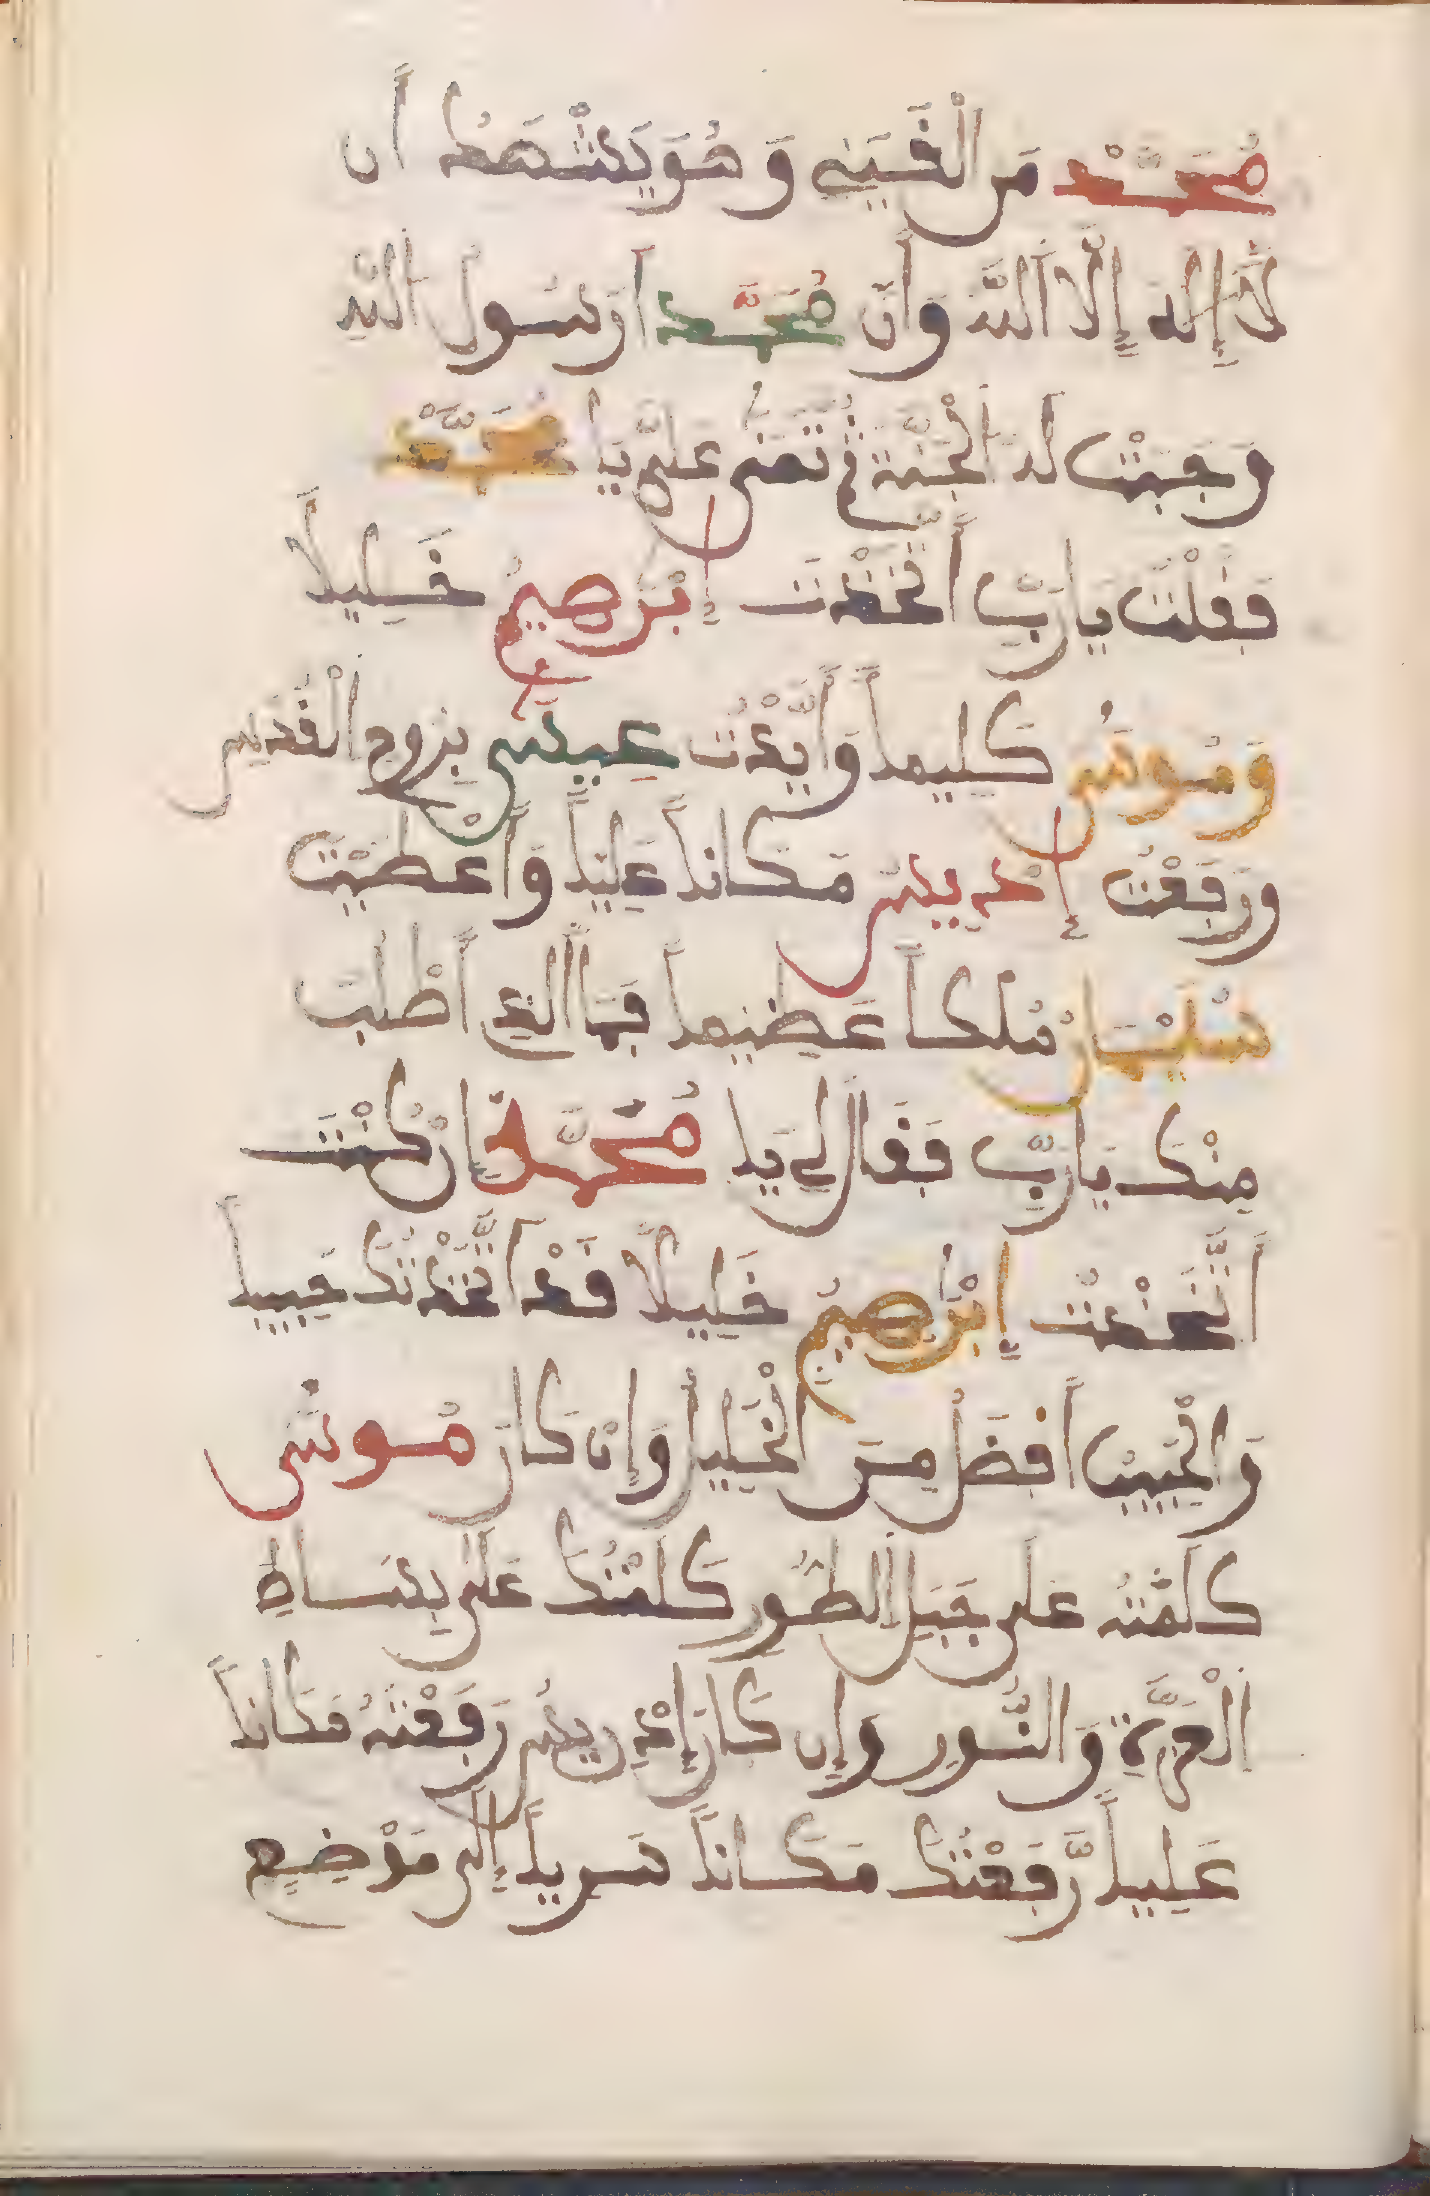 مُحَمَّد مَن لَقِيَنِي وَهُوَ يَشْهَدُ أَن
لَّا إِلَهَ إِلَّا اللَّهُ وَأَنَّ مُحَمَّداً رَسُولُ اللهِ
وَجَبَتْ لَهُ الْجَنَّةُ ثُمَّ تَمَنَّى عَلَيَّ يَا مُحَمَّدْ
فَقُلْتُ يَارَبِّ أَتَّخَذْتَ إِبْرَهِيمَ خَلِيلاً
وَمُوسَى كَلِيماً وَأَيَّدْتَ عِيسَى بِرُوحِ الْقُدُسِ
وَرَفَعْتَ إِدْرِيسَ مَكَاناً عَلِيّاً وَأَعْطَيْتَ
سُلَيْمَانَ مُلْكاً عَظِيماً فَمَا الذِي أَطْلُبُ
مِنْكَ يَارَبِّ فَقَالَ لِي يَا مُحَمَّدُ إِنْ كُنْتُ
أَتَّخَذْتُ إِبْرَهِيمَ خَلِيلاً فَقَدْ اتَّخَذْتُكَ حَبِيباً
وَالْحَبِيبُ أَفْضَلُ مِنَ الْخَلِيلِ وَإِنْ كَانَ مُوسَى
كَلَّمْتُهُ عَلَى جَبَلِ الطُّورِ كَلَّمْتُكَ عَلَى بِسَاطِ
الْعِزَّةِ وَالنُّورِ وَإِن كَانَ إِدْرِيسُ رَفَعْتُهُ مَكَاناً
عَلِيّاً رَّفَعْتُكَ مَكَاناً سَرِيّاً إِلَى مَوْضِعٍ